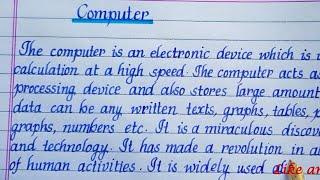 Computer
The computer is an electronic device which is
calculation at a high speed. The computer acts as
processing device and also stores large amount
data can be any written texts, graphs, tables,
graphs, numbers etc. It is a miraculous discov
and technology. It has made a revolution in
of human activities. It is widely used alike